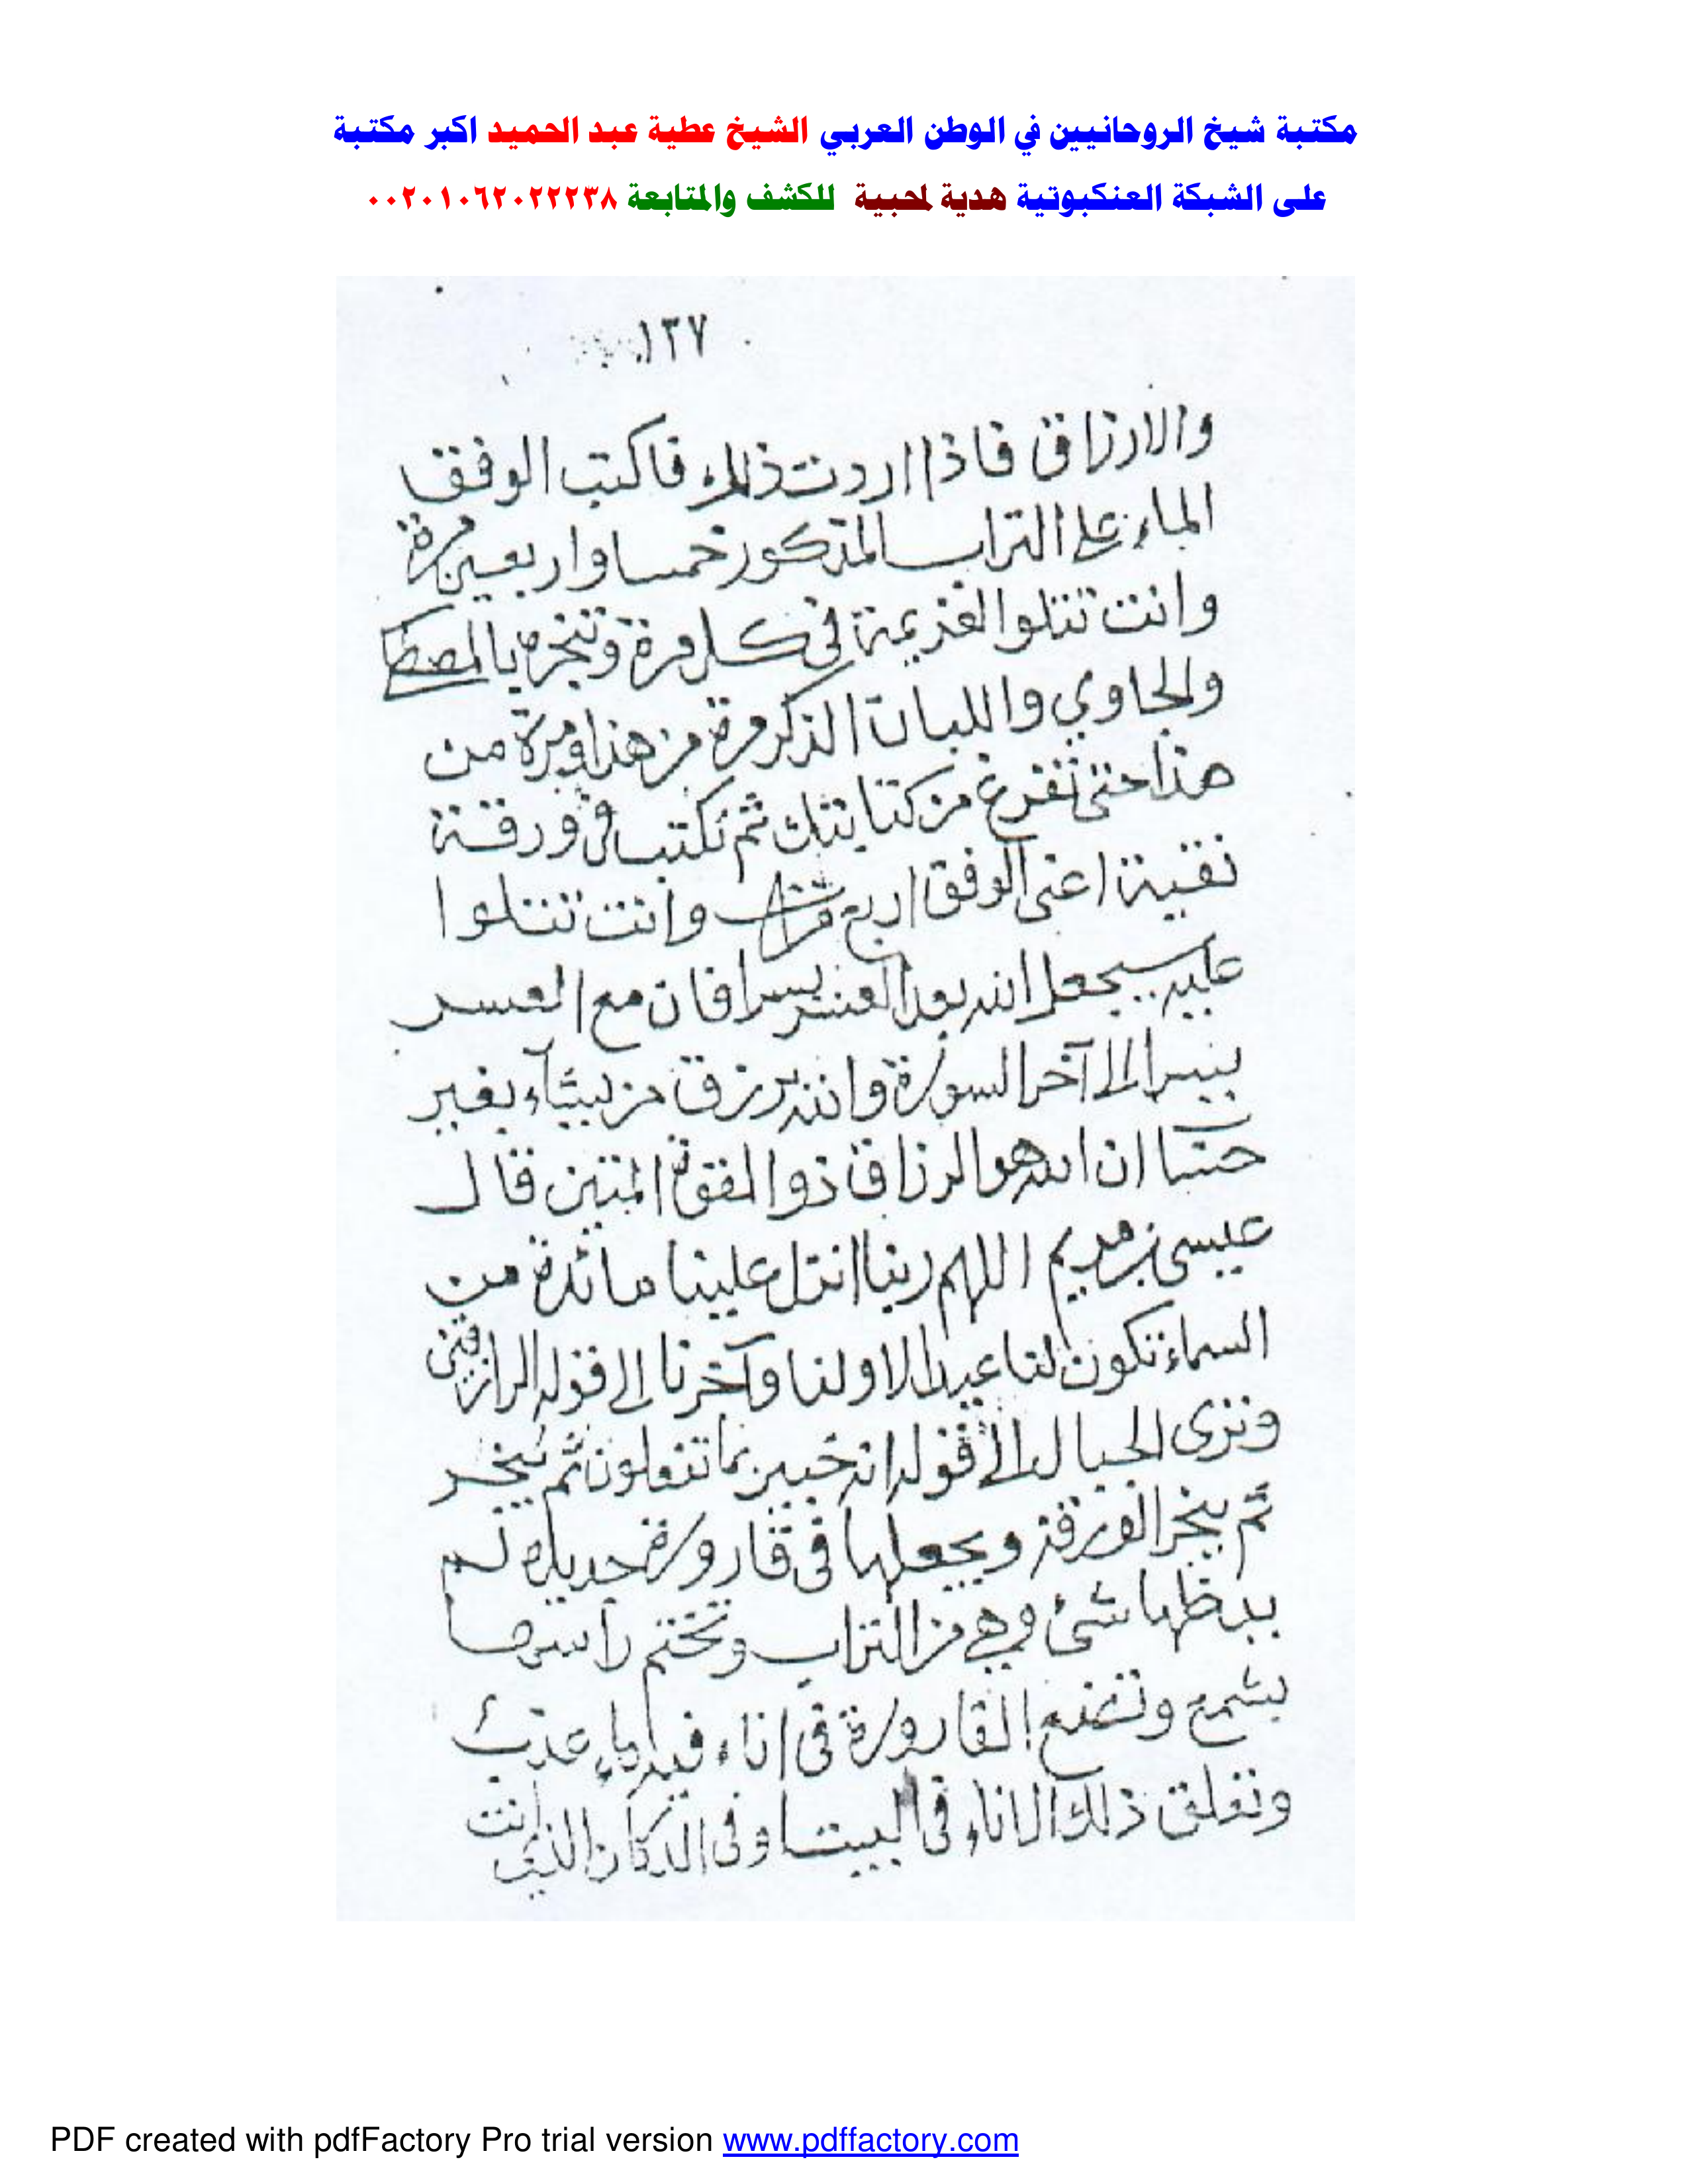 مكتبة شيخ الروحانيين في الوطن العربي الشيخ عطية عبد الحميد اكبر مكتبة
على الشبكة العنكبوتية هدية لمحبية للكشف والمتابعة ٠٠٢٠١٠٦٢٠٢٢٢٣٨
١٣٧
والارزاق فاذا اردت ذلك فاكتب الوفق
الماء على التراب المذكور خمسا واربعين مرة
وانت تتلوا العزيمة في كل مرة وتبخره بالمصطكا
والجاوي واللبان الذكر مرة من هذا ومرة من
هذا حتى تفرغ من كتابتك ثم تكتب في ورقة
نقية اعنى الوفق اربع مرات وانت تتلوا
عليه سيجعل الله بعد العسر يسرا فان مع العسر
يسرا الى آخر السورة والله يرزق من يشاء بغير
حساب ان الله هو الرزاق ذوا القوة المتين قال
عيسى بن مريم اللهم ربنا انزل علينا مائدة من
السماء تكون لنا عيدا لاولنا وآخرنا الى قوله الرازقين
وترى الجبال الى قوله انه خبير بما تفعلون ثم تبخر
ثم يبخر الورقة ويجعلها في قارورة جديدة لم
يدخلها شئ وهي من التراب وتختم راسها
بشمع وتضع القارورة في اناء فيه ماء عذب
وتعلق ذلك الاناء في البيت او في الدكان الذي انت
PDF created with pdfFactory Pro trial version www.pdffactory.com